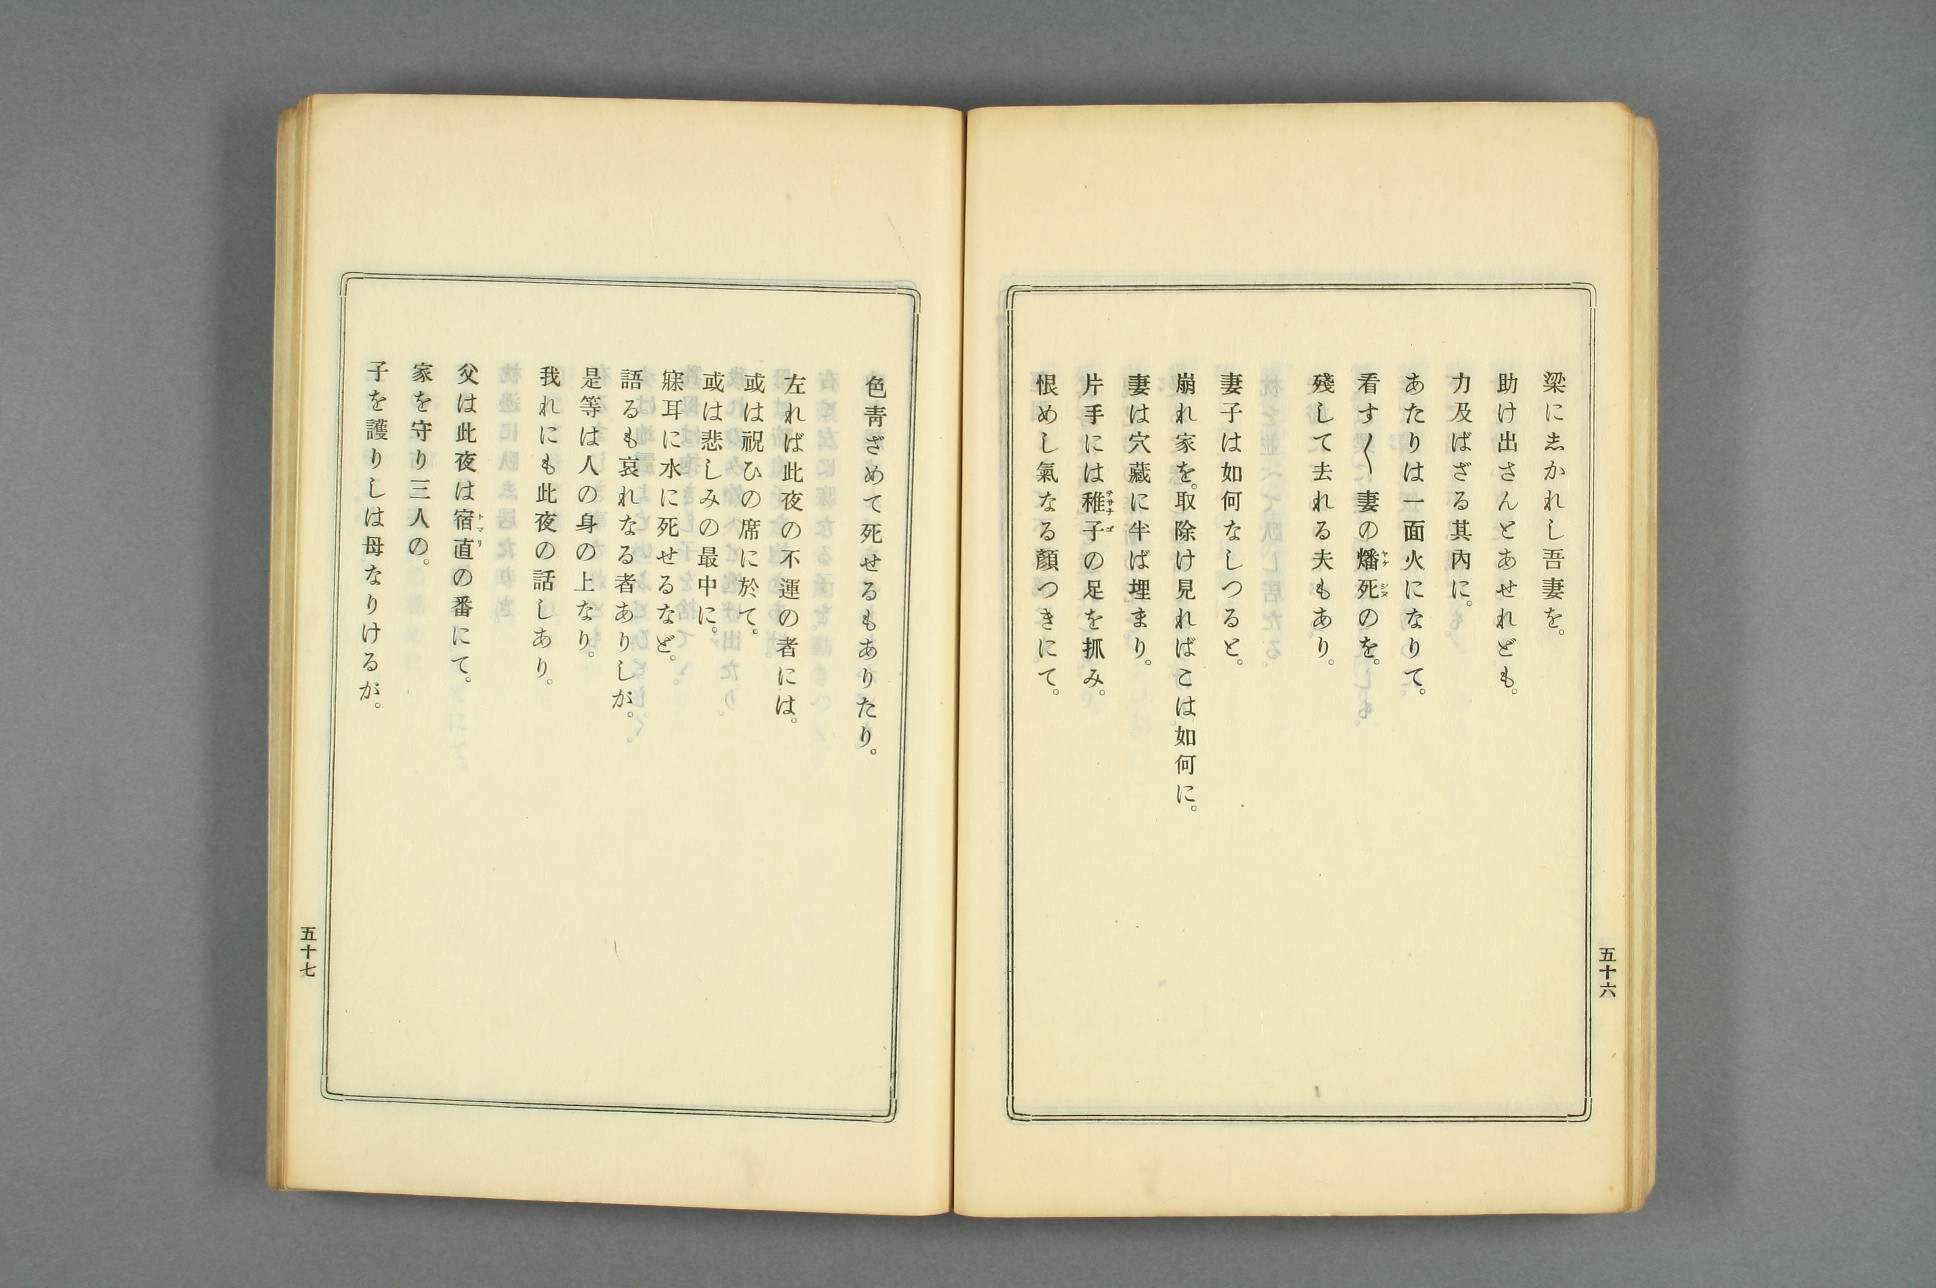 梁に志かれし吾妻を。
助け出さんとあせれども。
力及ばざる其內に。
あたりは一面火になりて。
看す〱妻の燔死のを。
ヤケ シヌ
殘して去れる夫もあり。
妻子は如何なしつると。
崩れ家を。取除け見ればこは如何に。
妻は穴藏に半ば埋まり。
片手には稚子の足を抓み。
ヲサナゴ
恨めし氣なる顏つきにて。
五十六
色靑ざめて死せるもありたり。
左れば此夜の不運の者には。
或は祝ひの席に於て。
或は悲しみの最中に。
寐耳に水に死せるなど。
語るも哀れなる者ありしが。
是等は人の身の上なり。
我れにも此夜の話しあり。
父は此夜は宿直の番にて。
トマリ
家を守り三人の。
子を護りしは母なりけるが。
五十七